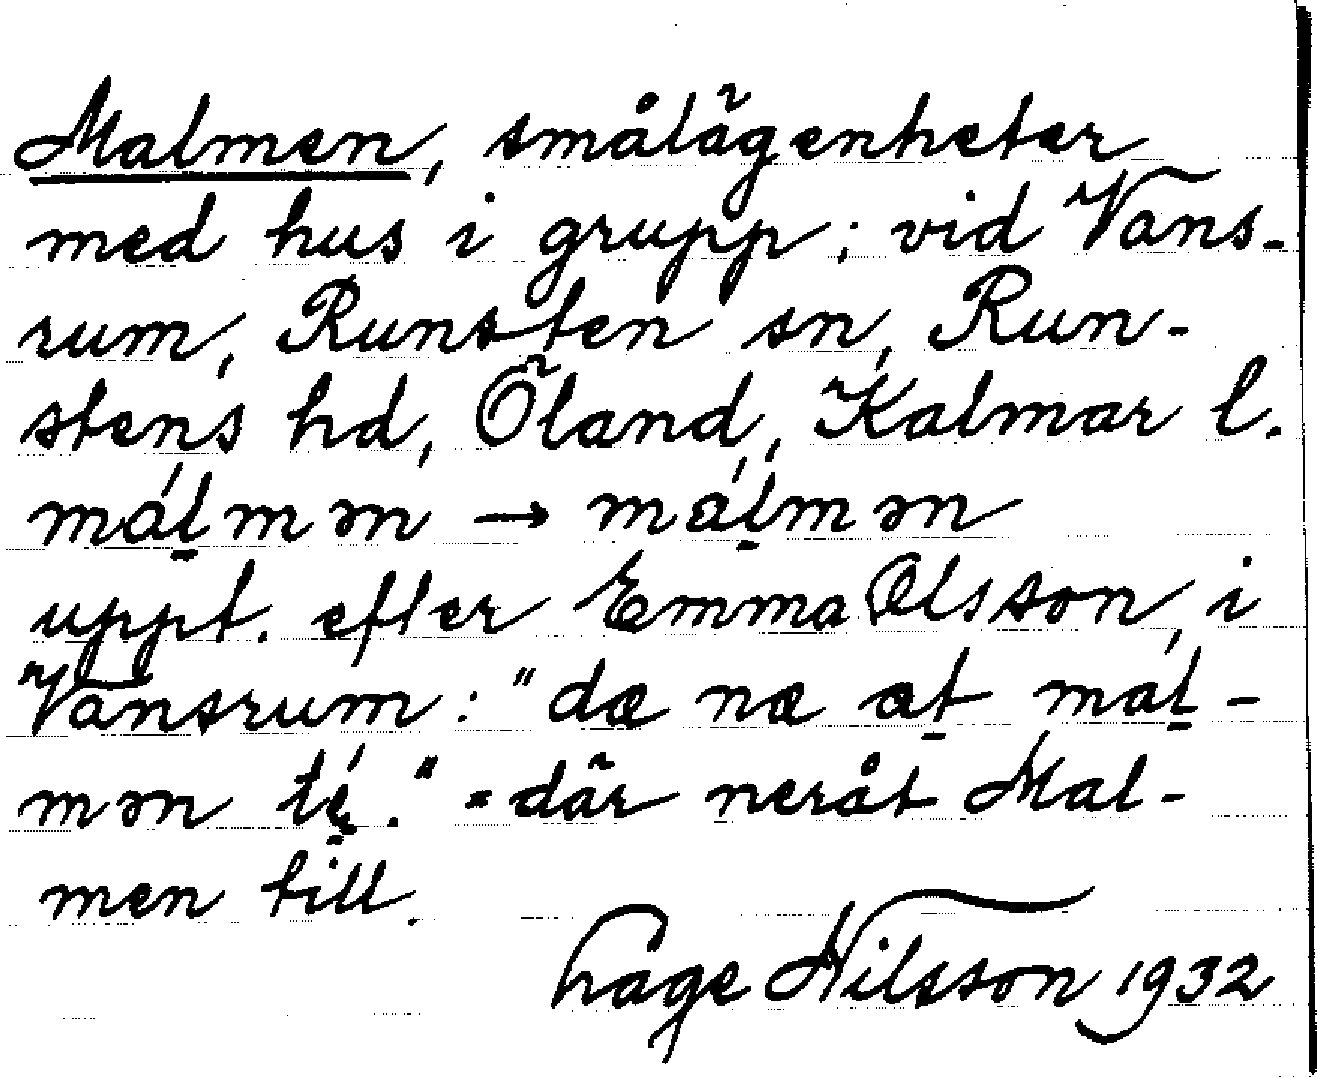 Malmen, smålägenheter
med hus i grupp; vid Vans-
rum, Runsten sn, Run-
stens hd, Öland, Kalmar l.
málmən → málmən
uppt. efter Emma Olsson, i
Vansrum: "dæ næ æt mal-
mən té." = där neråt Mal-
men till.
Håge Nilsson 1932